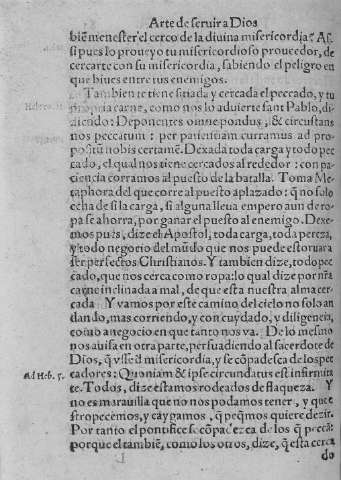 Arte de seruir a Dios
biẽ menester el cerco de la diuina misericordia? As
si pues lo proueyo tu misericordioso proueedor, de
cercarte con su misericordia, sabiendo el peligro en
que biues entre tus enemigos.
Tambien te tiene sitiada y cercada el peccado, y tu
propria carne, como nos lo aduierte sant Pablo, di
ziendo: Deponentes omne pondus, & circustans
nos peccatum: per patientiam curramus ad pro
positũ nobis certamẽ. Dexada toda carga y todo pec
cado, el qual nos tiene cercados al rededor: con pa
ciencia corramos al puesto de la batalla. Toma Me
taphora del que corre al puesto aplazado: q̃ no solo
echa de si la carga, si alguna lleua empero aun de ro
pa se ahorra, por ganar el puesto al enemigo. Dexe
mos pues, dize el Apostol, toda carga, toda pereza,
y todo negocio del mũdo que nos puede estoruar a
ser perfectos Christianos. Y tambien dize, todo pec
cado, que nos cerca como ropa: lo qual dize por nr̃a
carne inclinada a mal, de que esta nuestra alma cer
cada. Y vamos por este camino del cielo no solo an
dando, mas corriendo, y con cuydado, y diligencia,
como a negocio en que tanto nos va. De lo mesmo
nos auisa en otra parte, persuadiendo al sacerdote de
Dios, q̃ vsse d̃ misericordia, y se cõpadesca de los pec
Ad Heb. 5.
cadores: Quoniam & ipse circundatus est infirmita
te. Todos, dize estamos rodeados de flaqueza. Y
no es marauilla que no nos podamos tener, y que e
stropecemos, y caygamos, q̃ peq̃mos quiere dezir.
Por tanto el pontifice se cõpadezca de los q̃ peccã:
porque el tambiẽ, como los otros, dize, q̃ esta cerca
do